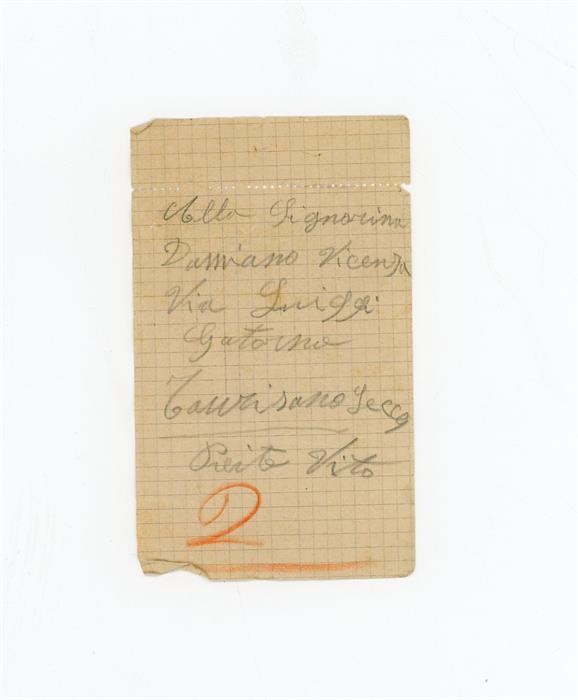 Alla Signorina
Damiano Vicenza
Via Luiggi
Gatorino
Taurisano Lecce
Preite Vito
2